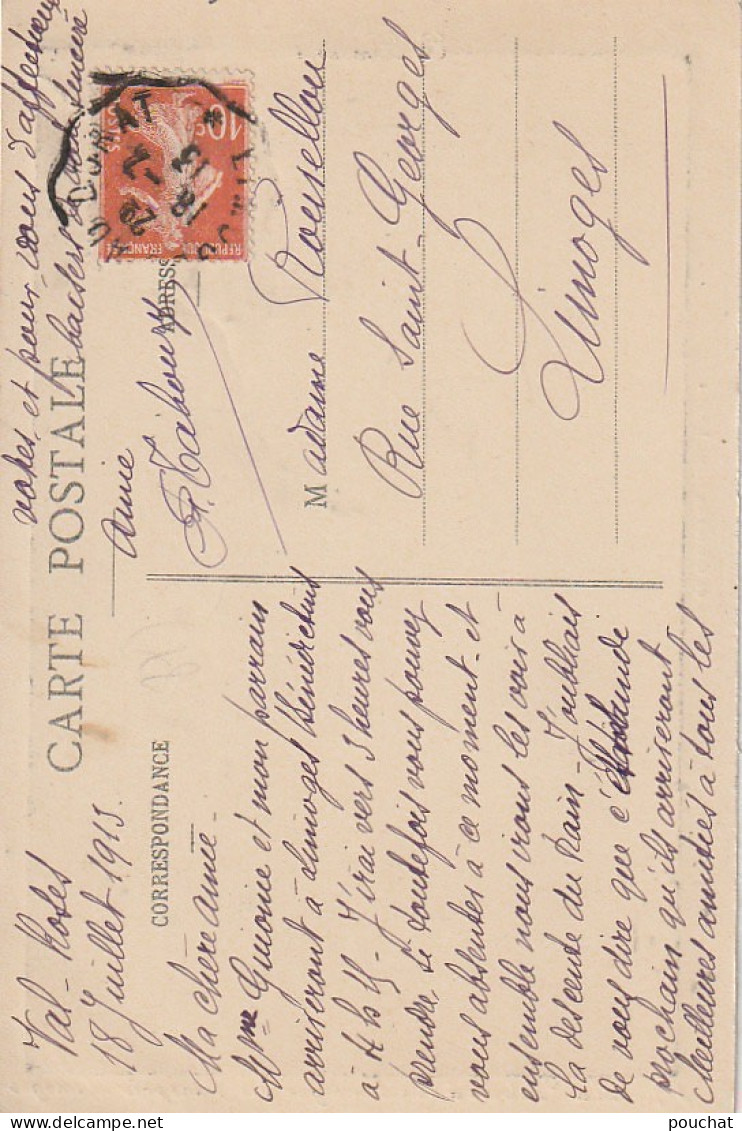 CARTE POSTALE
CORRESPONDANCE
ADRESSE
Val-Roses
18 Juillet 1913.
Ma chère amie -
Mme Guioine et mon parrain
arriveront à Limoges Bénédictins
à 4 h 15 - J'irai vers 3 heures vous
prendre si toutefois vous pouvez
vous absenter à ce moment - et
ensemble nous irons les voir à
la descente du train - J'oubliais
de vous dire que c'est lundi
prochain qu'ils arriseront
Meilleures amitiés à tous les
votres, et pour vous d'affectueux
baisers de votre sincère
amie
Madame Rousellou
Rue Saint-Georges
Limoges
10c
POSTES
REPUBLIQUE FRANCAISE
DORAT
18 - 7
13
pouchat